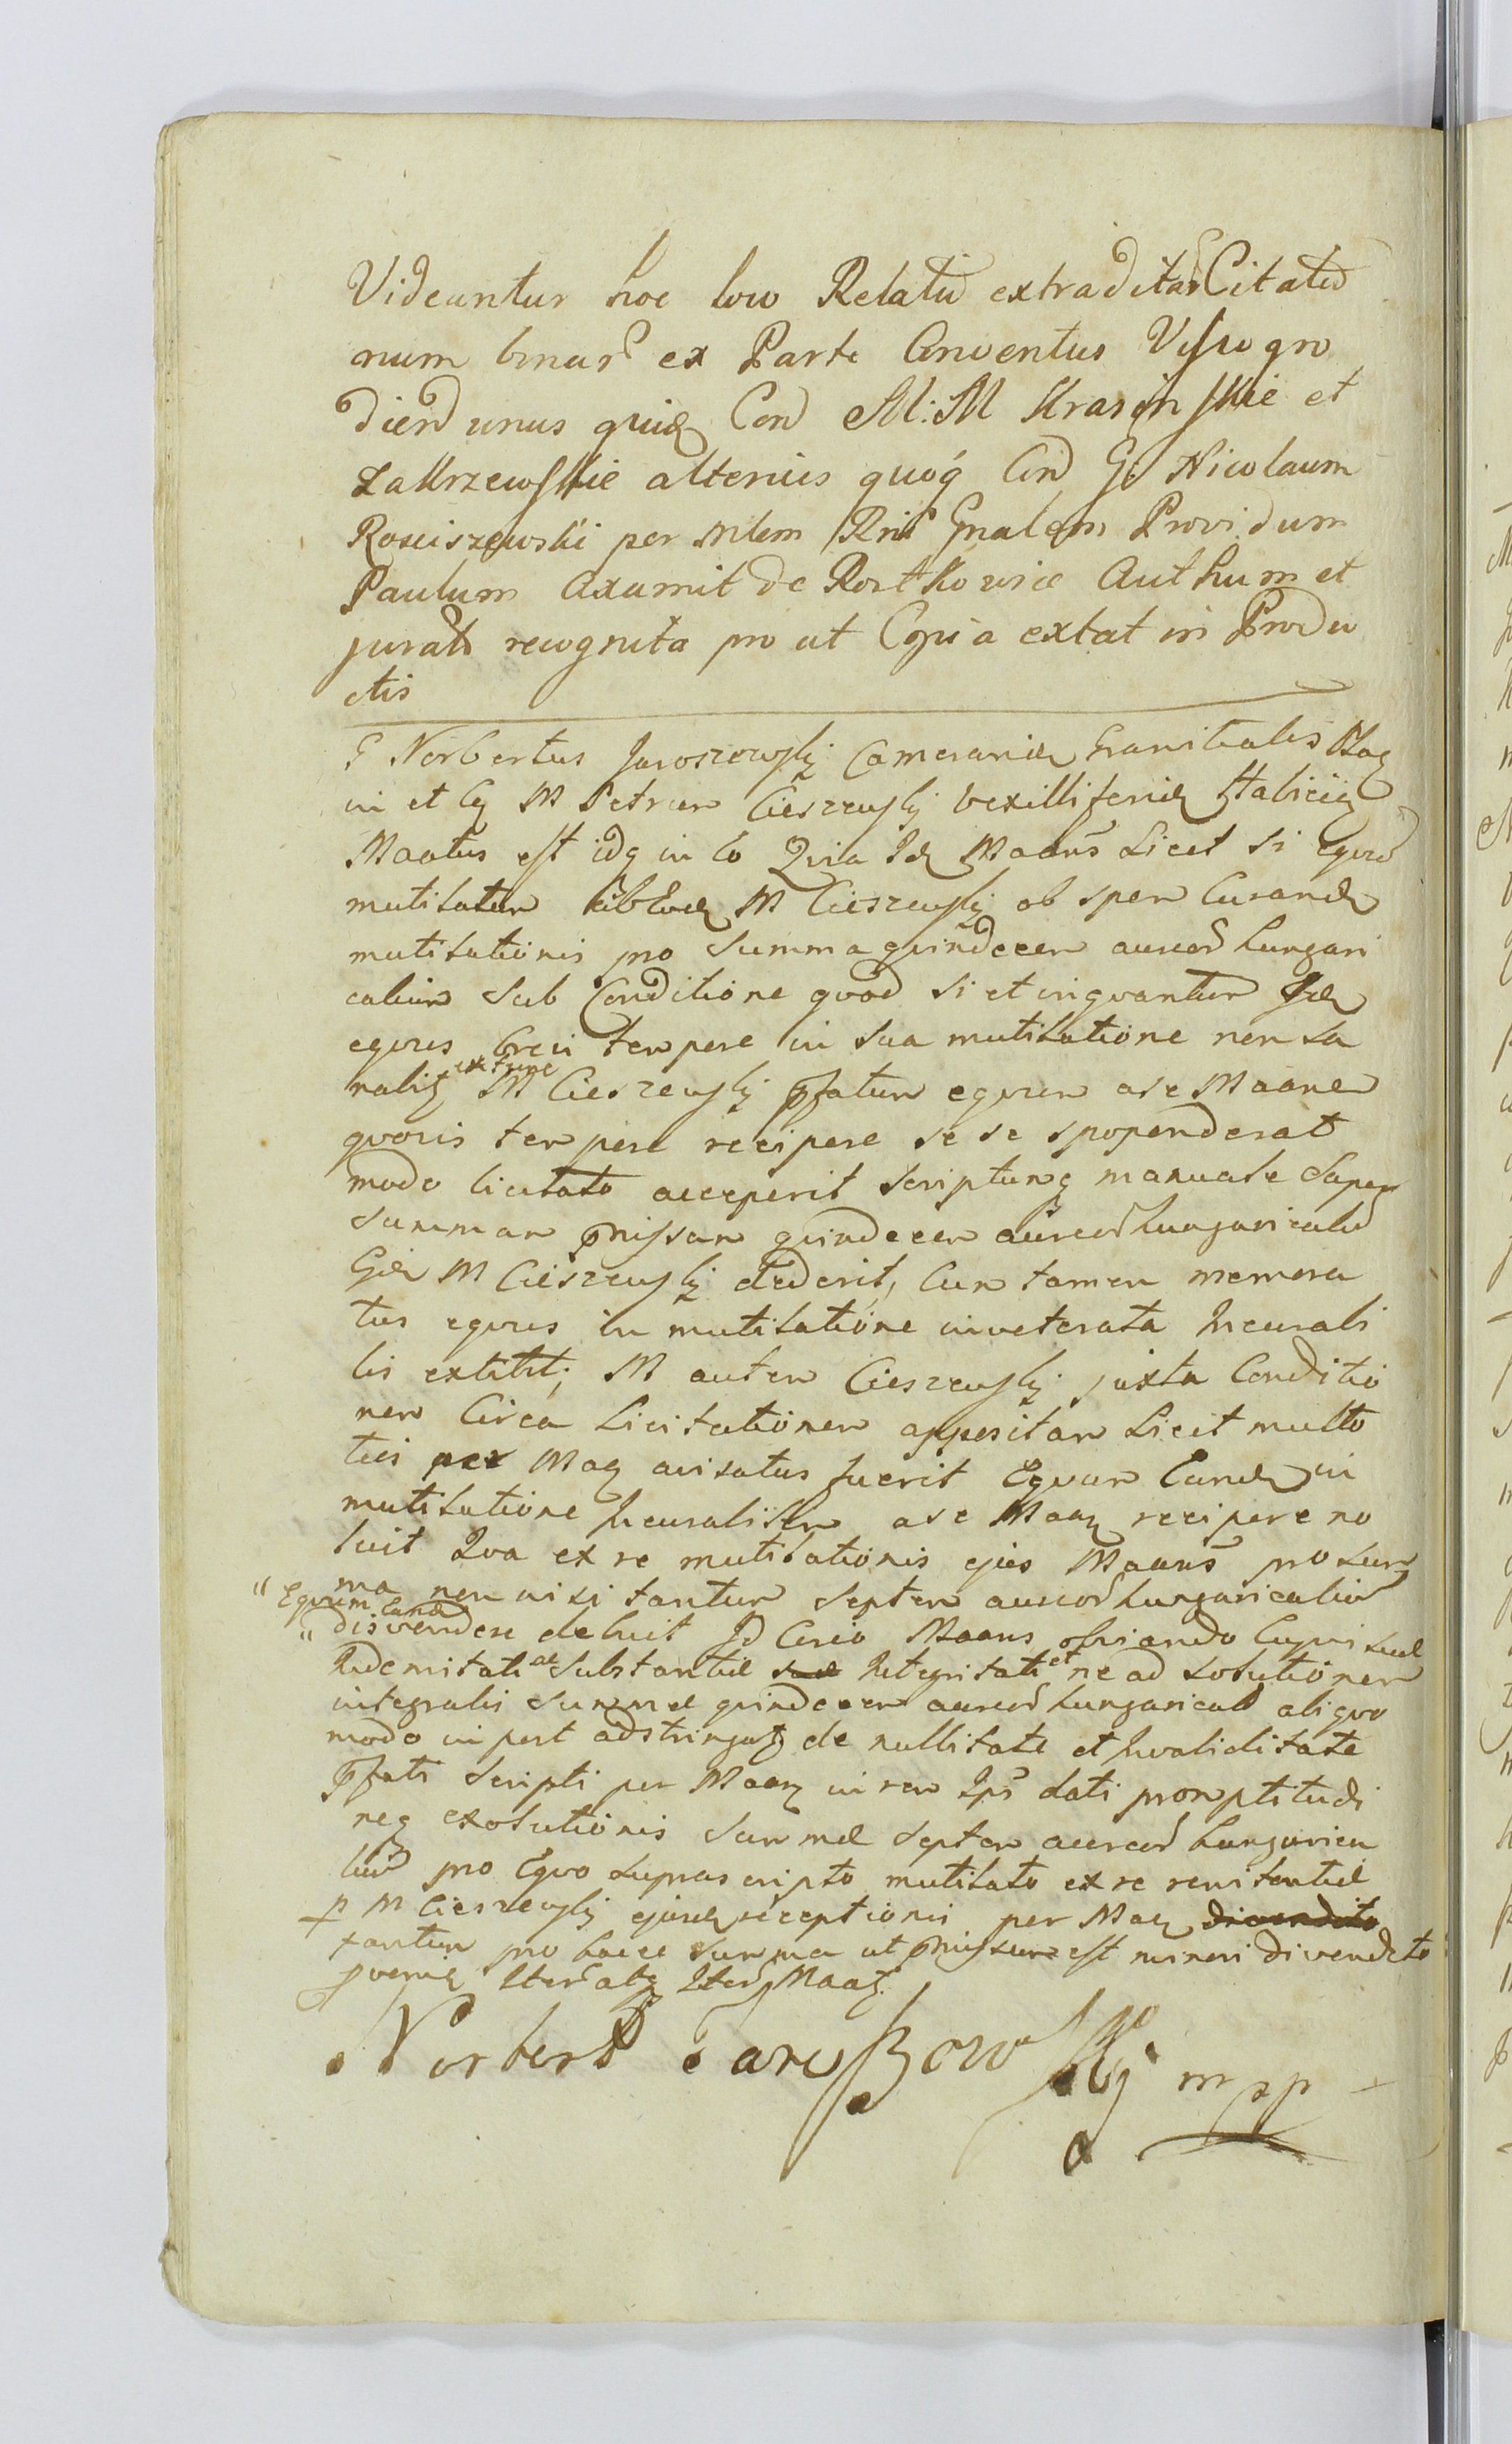 Videantur hoc loco Relatio extraditar Citatio
num binar ex Parte Conventus Vissogro
dien unus quide Con M: M Krasinskie et
Zakrzewskie alterius quoq Con G Nicolaum
Rosciszewski per Mlem Rni Gnalem Providum
Paulum Axamit de Rostkowice Authum et
jurato recognita pro ut Copia extat in Produ
ctis
G Norbertus Jaroszewskj Camerarius Granitialis
in et Cg M Petrum Cieszewskj vexilliferu Haliciie
Maatus est idq in eo Quia Maans Licet si Equo
mutilatum M Cieszewskj ob spem Curande
mutilationis pro Summa quindecem aureor hungari
calium sub Conditione quod si et inquantum
equus brevi tempore in sua mutilatione non sa
nabit ex tunc M Cieszewskj pfatum equum a se Maane
quovis tempore recipere se se spoponderat
modo licitato acceperit Scriptumq manuale Super
Summam pmissam quindecem aureor hungaricaliu
Gde M Cieszewskj dederit, Cum tamen memora
tus equus in mutilatione inveterata Incurabi
lis extitit; M autem Cieszewskj juxta Conditio
nem Circa Licitationem appositam Licet multo
ties per Maq avisatus fuerit Equum Eunde in
mutilatione Incurabilem a se Maaq recipere no
luit Qva ex re mutilationis ejus Maans pro sum
ma non nisi tantum Septem aureor hungaricaliu
" Equum Eunde
" disvendere debuit Id Circo Maans obviando Cuivis suae
Indemnitati ac Substantiae Integritati et ne ad solutionem
integralis Summae quindecem aureor hungarical aliquo
modo in post adstringat de nullitate et Invaliditate
pfati Scripti per Maaq in rem Ips dati promptitudi
neq exolutionis Summae Septem aureor hungarica
liu pro Equo supra scripto mutilato ex re renitentiae
p M Cieszewskj ejusde receptionis per Maq divendito
tantum pro hacce Summa ut pmissum est minori divendito
pvenie Iter atq Iter Maat
Norbert Jaroszowskj mpp